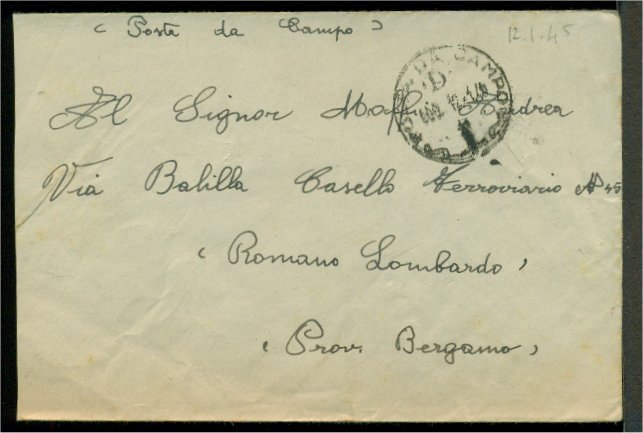 ( Posta da Campo )
12.1.45
POSTA DA CAMPO
Al Signor Maffi Andrea
Via Balilla Casello Ferroviario N° 45
( Romano Lombardo )
( Prov. Bergamo )